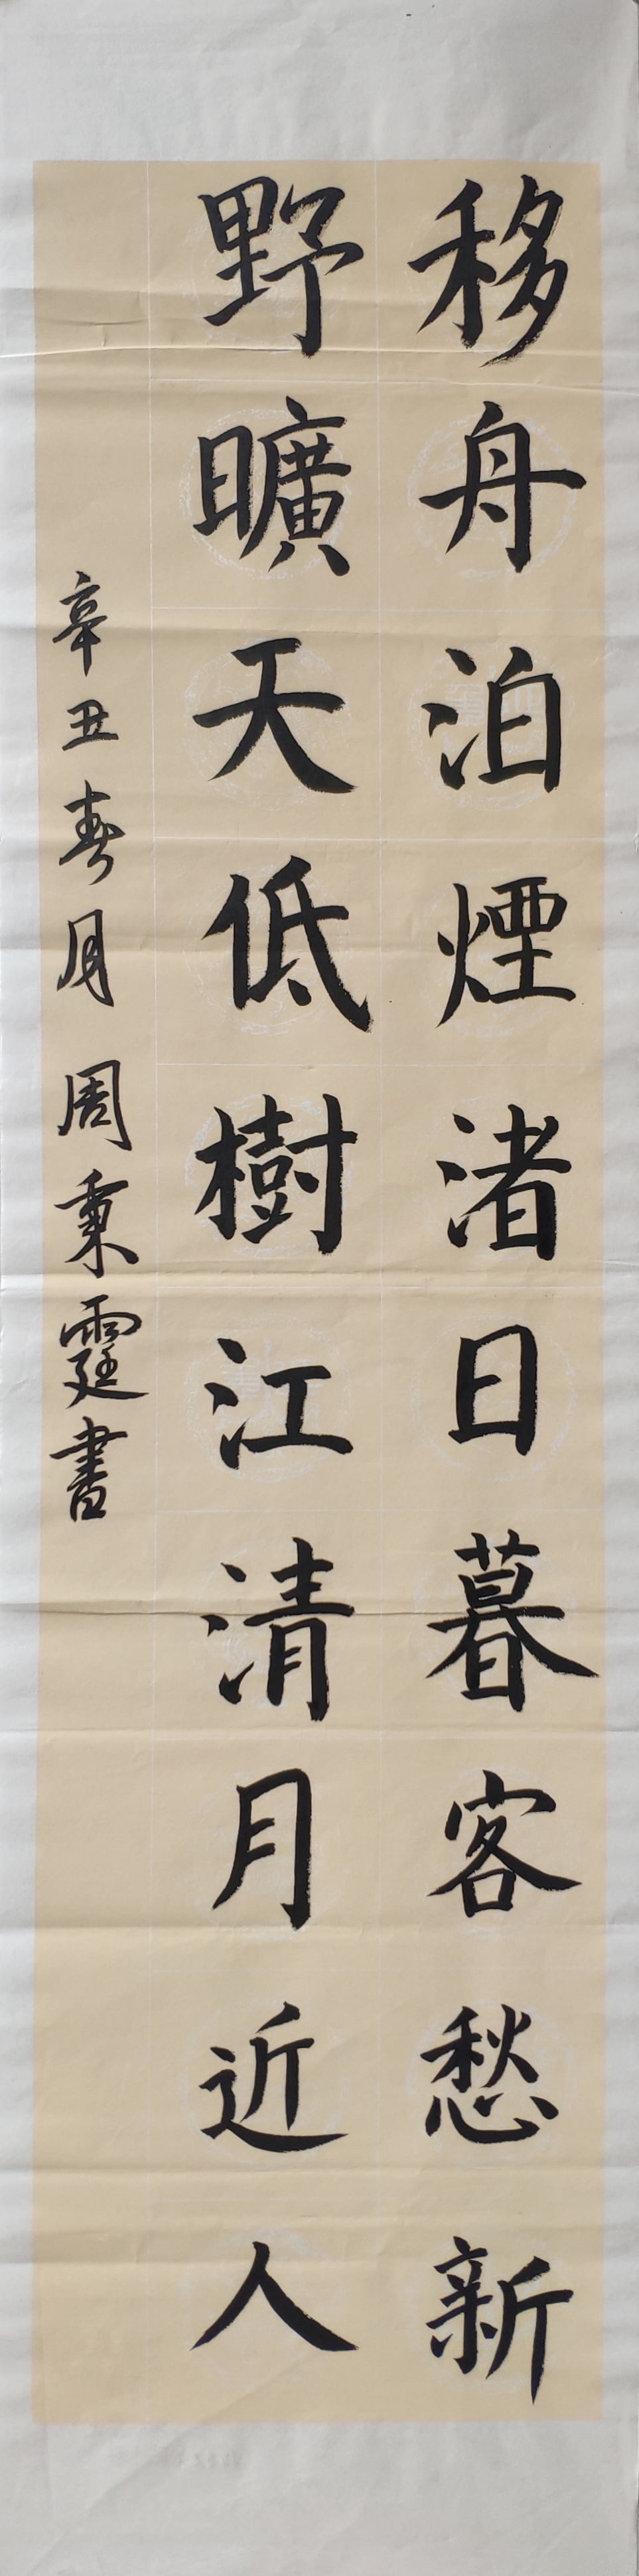 移舟泊煙渚日暮客愁新
野曠天低樹江清月近人
辛丑春月周秉霆書